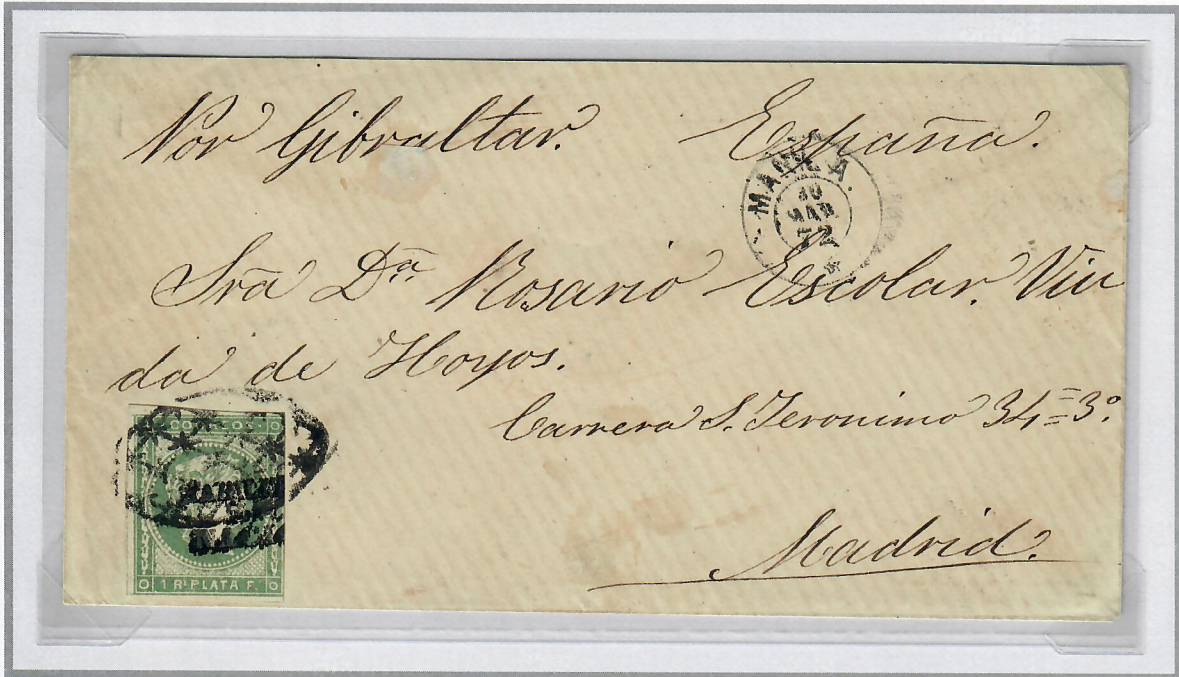 Por Gibraltar. España.
MANILA
30
MAR
72
Sra̅ Dª Rosario Escolar. Viu
da de Hoyos.
CORREOS
Carrera S. Jeronimo 34 = 3º.
Madrid.
1 Rˡ PLATA F.